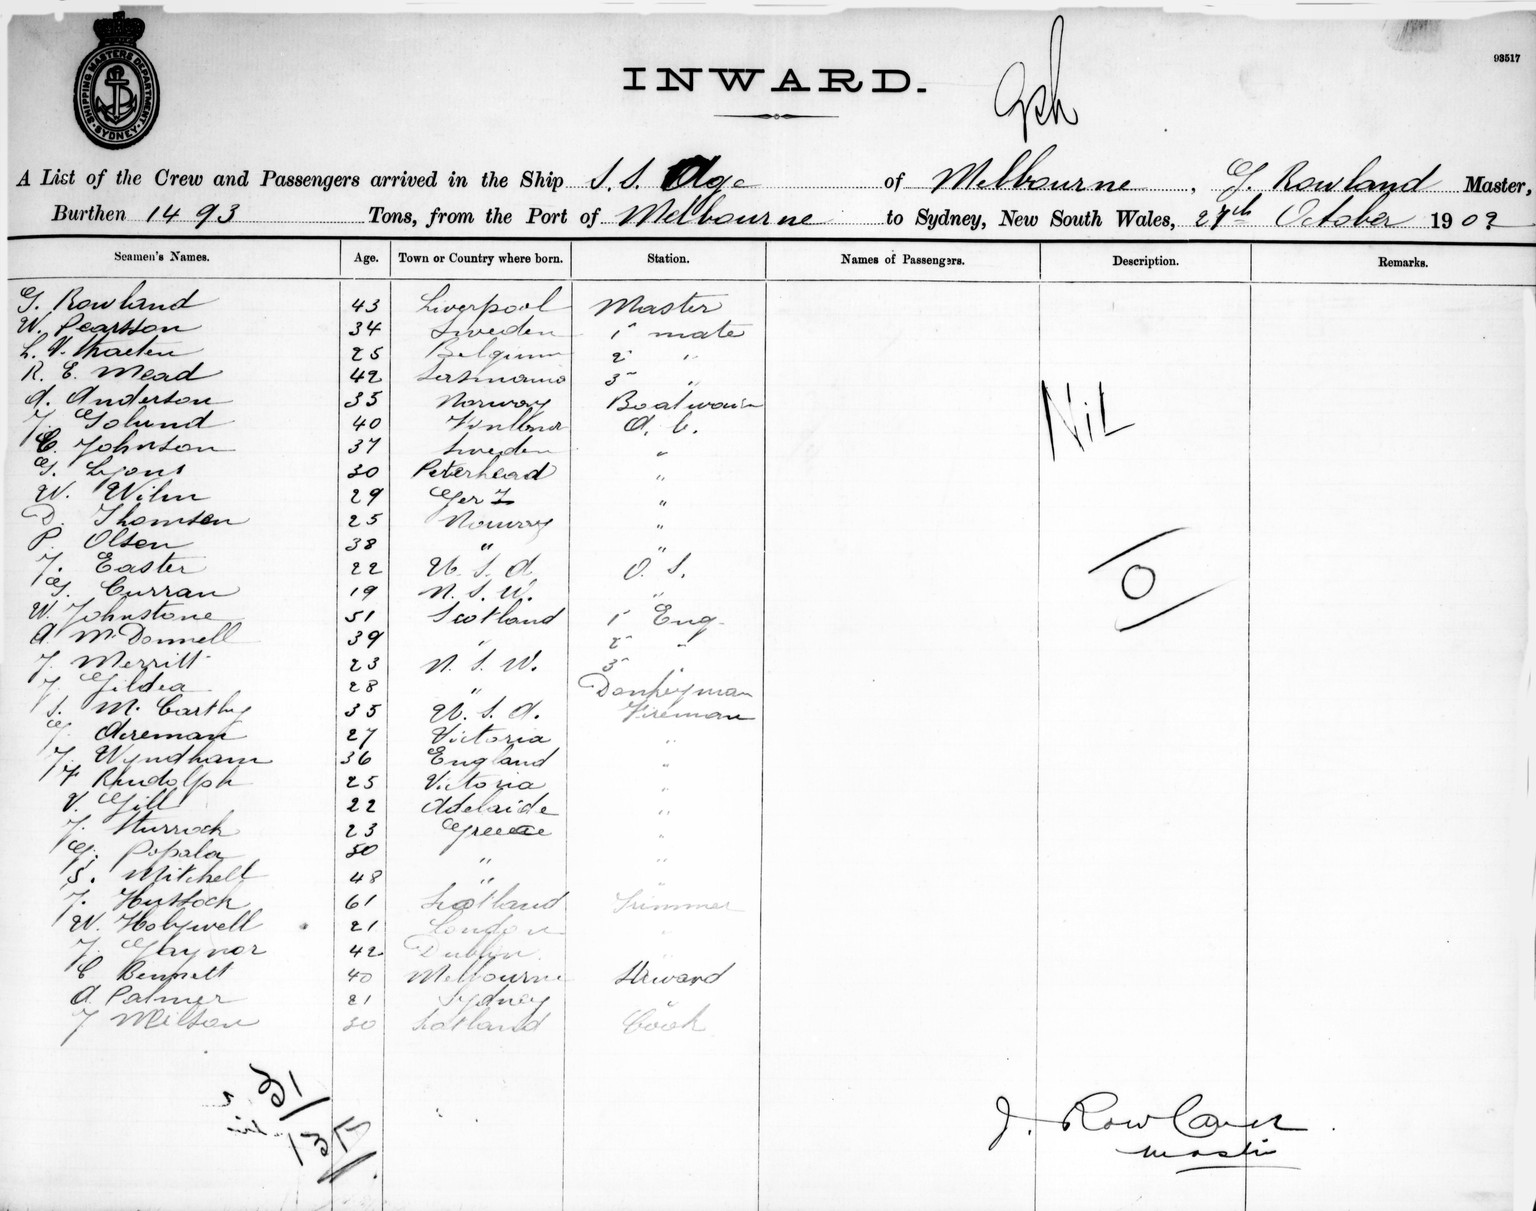 SHIPPING MASTERS DEPARTMENT
SYDNEY
93517
INWARD.
A List of the Crew and Passengers arrived in the Ship S.S. Age of Melbourne, G. Rowland Master,
Burthen 1493 Tons, from the Port of Melbourne to Sydney, New South Wales, 27th October 1902
Seamen's Names. Age. Town or Country where born. Station. Names of Passengers. Description. Remarks.
G. Rowland 43 Liverpool Master
W. Pearsson 34 Sweden 1st mate
25 Belgium 2nd "
R. E. Mead 42 Tasmania 3rd "
A. Anderson 35 Norway Boatswain
40 A. B.
C. Johnson 37 Sweden "
G. Lyons 30 Peterhead "
W. Wilm 29 Ger "
D. Thomsen 25 Norway "
P. Olsen 38 " "
J. Easter 22 U. S. A. O. S.
G. Curran 19 N. S. W. "
W. Johnstone 51 Scotland 1st Eng.
A. McDonnell 39 " 2nd "
J. Merritt 23 N. S. W. 3rd "
J. Gildea 28 " Donkeyman
S. McCarthy 35 U. S. A. Fireman
G. Aireman 27 Victoria "
J. Wyndham 36 England "
F. Rhudolph 25 Victoria "
V. Gill 22 Adelaide "
J. Sturrock 23 Greece "
G. Popala 50 " "
S. Mitchell 48 " "
J. Hussock 61 Scotland Trimmer
W. Holywell 21 London "
J. Gaynor 42 Dublin "
C Bennett 40 Melbourne Steward
A. Palmer 21 Sydney "
J Wilson 30 Scotland Cook
NiL
O
J. Rowland
Master